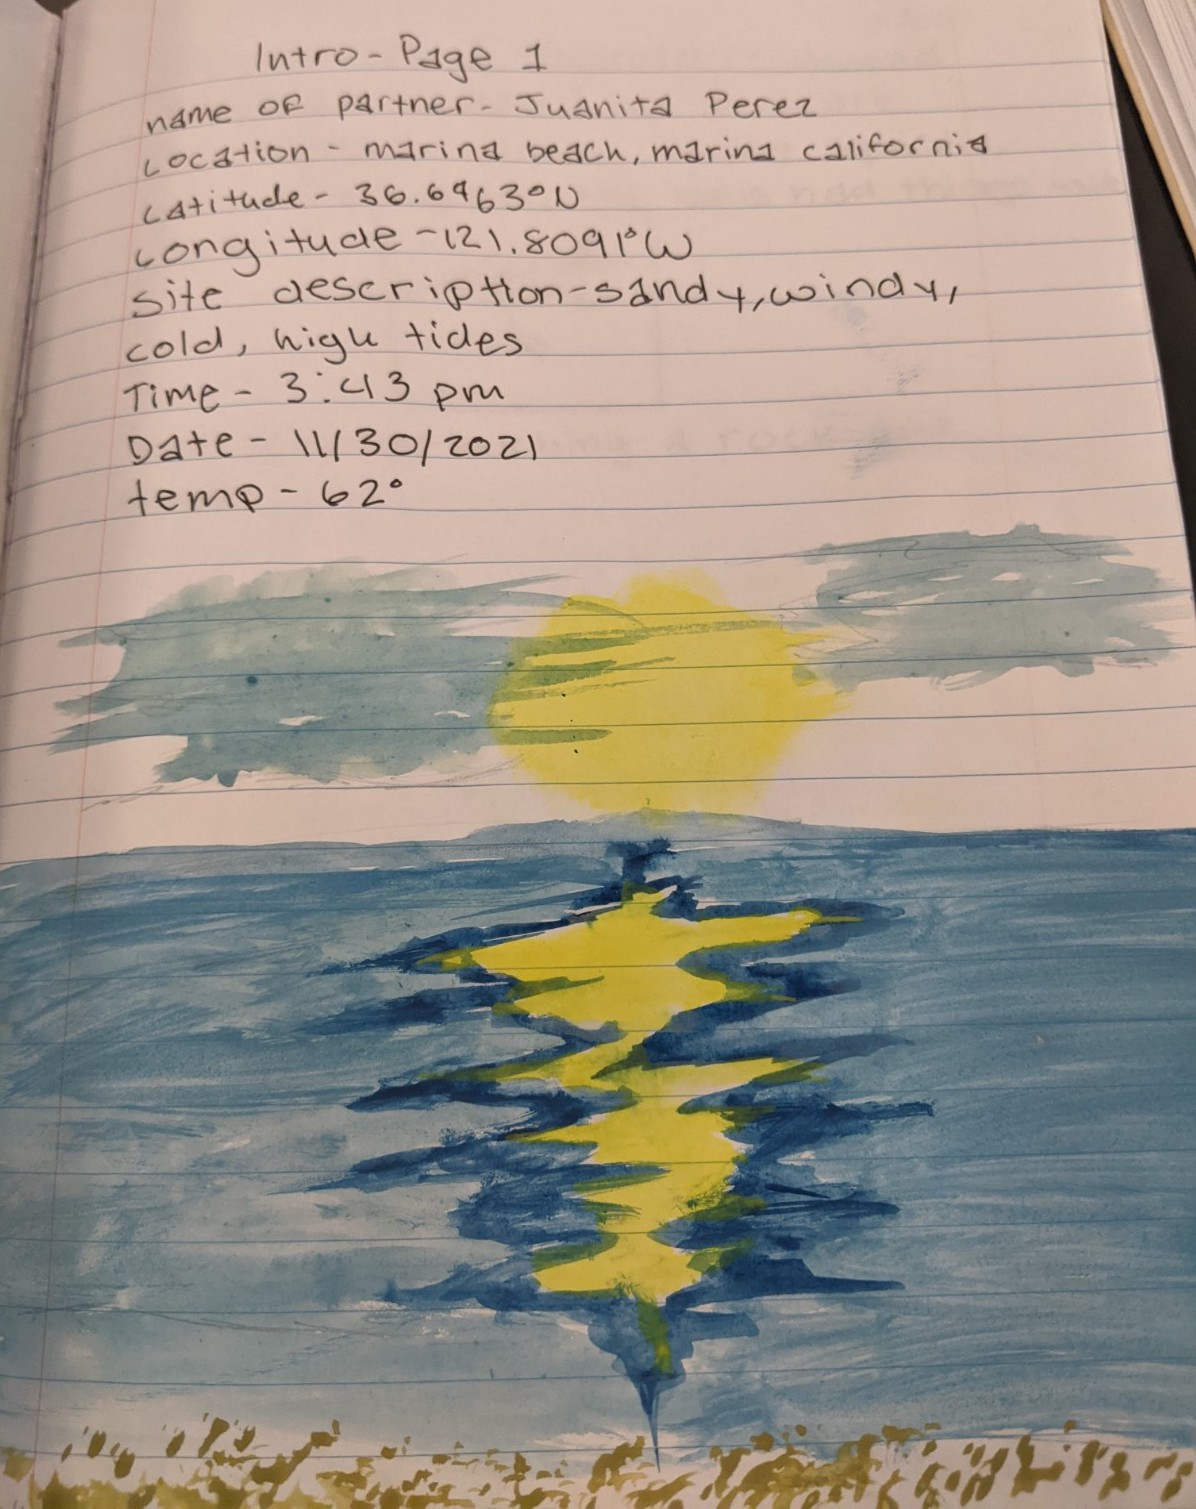 Intro - Page 1
name of partner - Juanita Perez
Location - marina beach, marina california
Latitude - 36.6963°N
Longitude -121.8091°W
site description-sandy, windy,
cold, high tides
Time - 3:43 pm
Date - 11/30/2021
temp - 62°